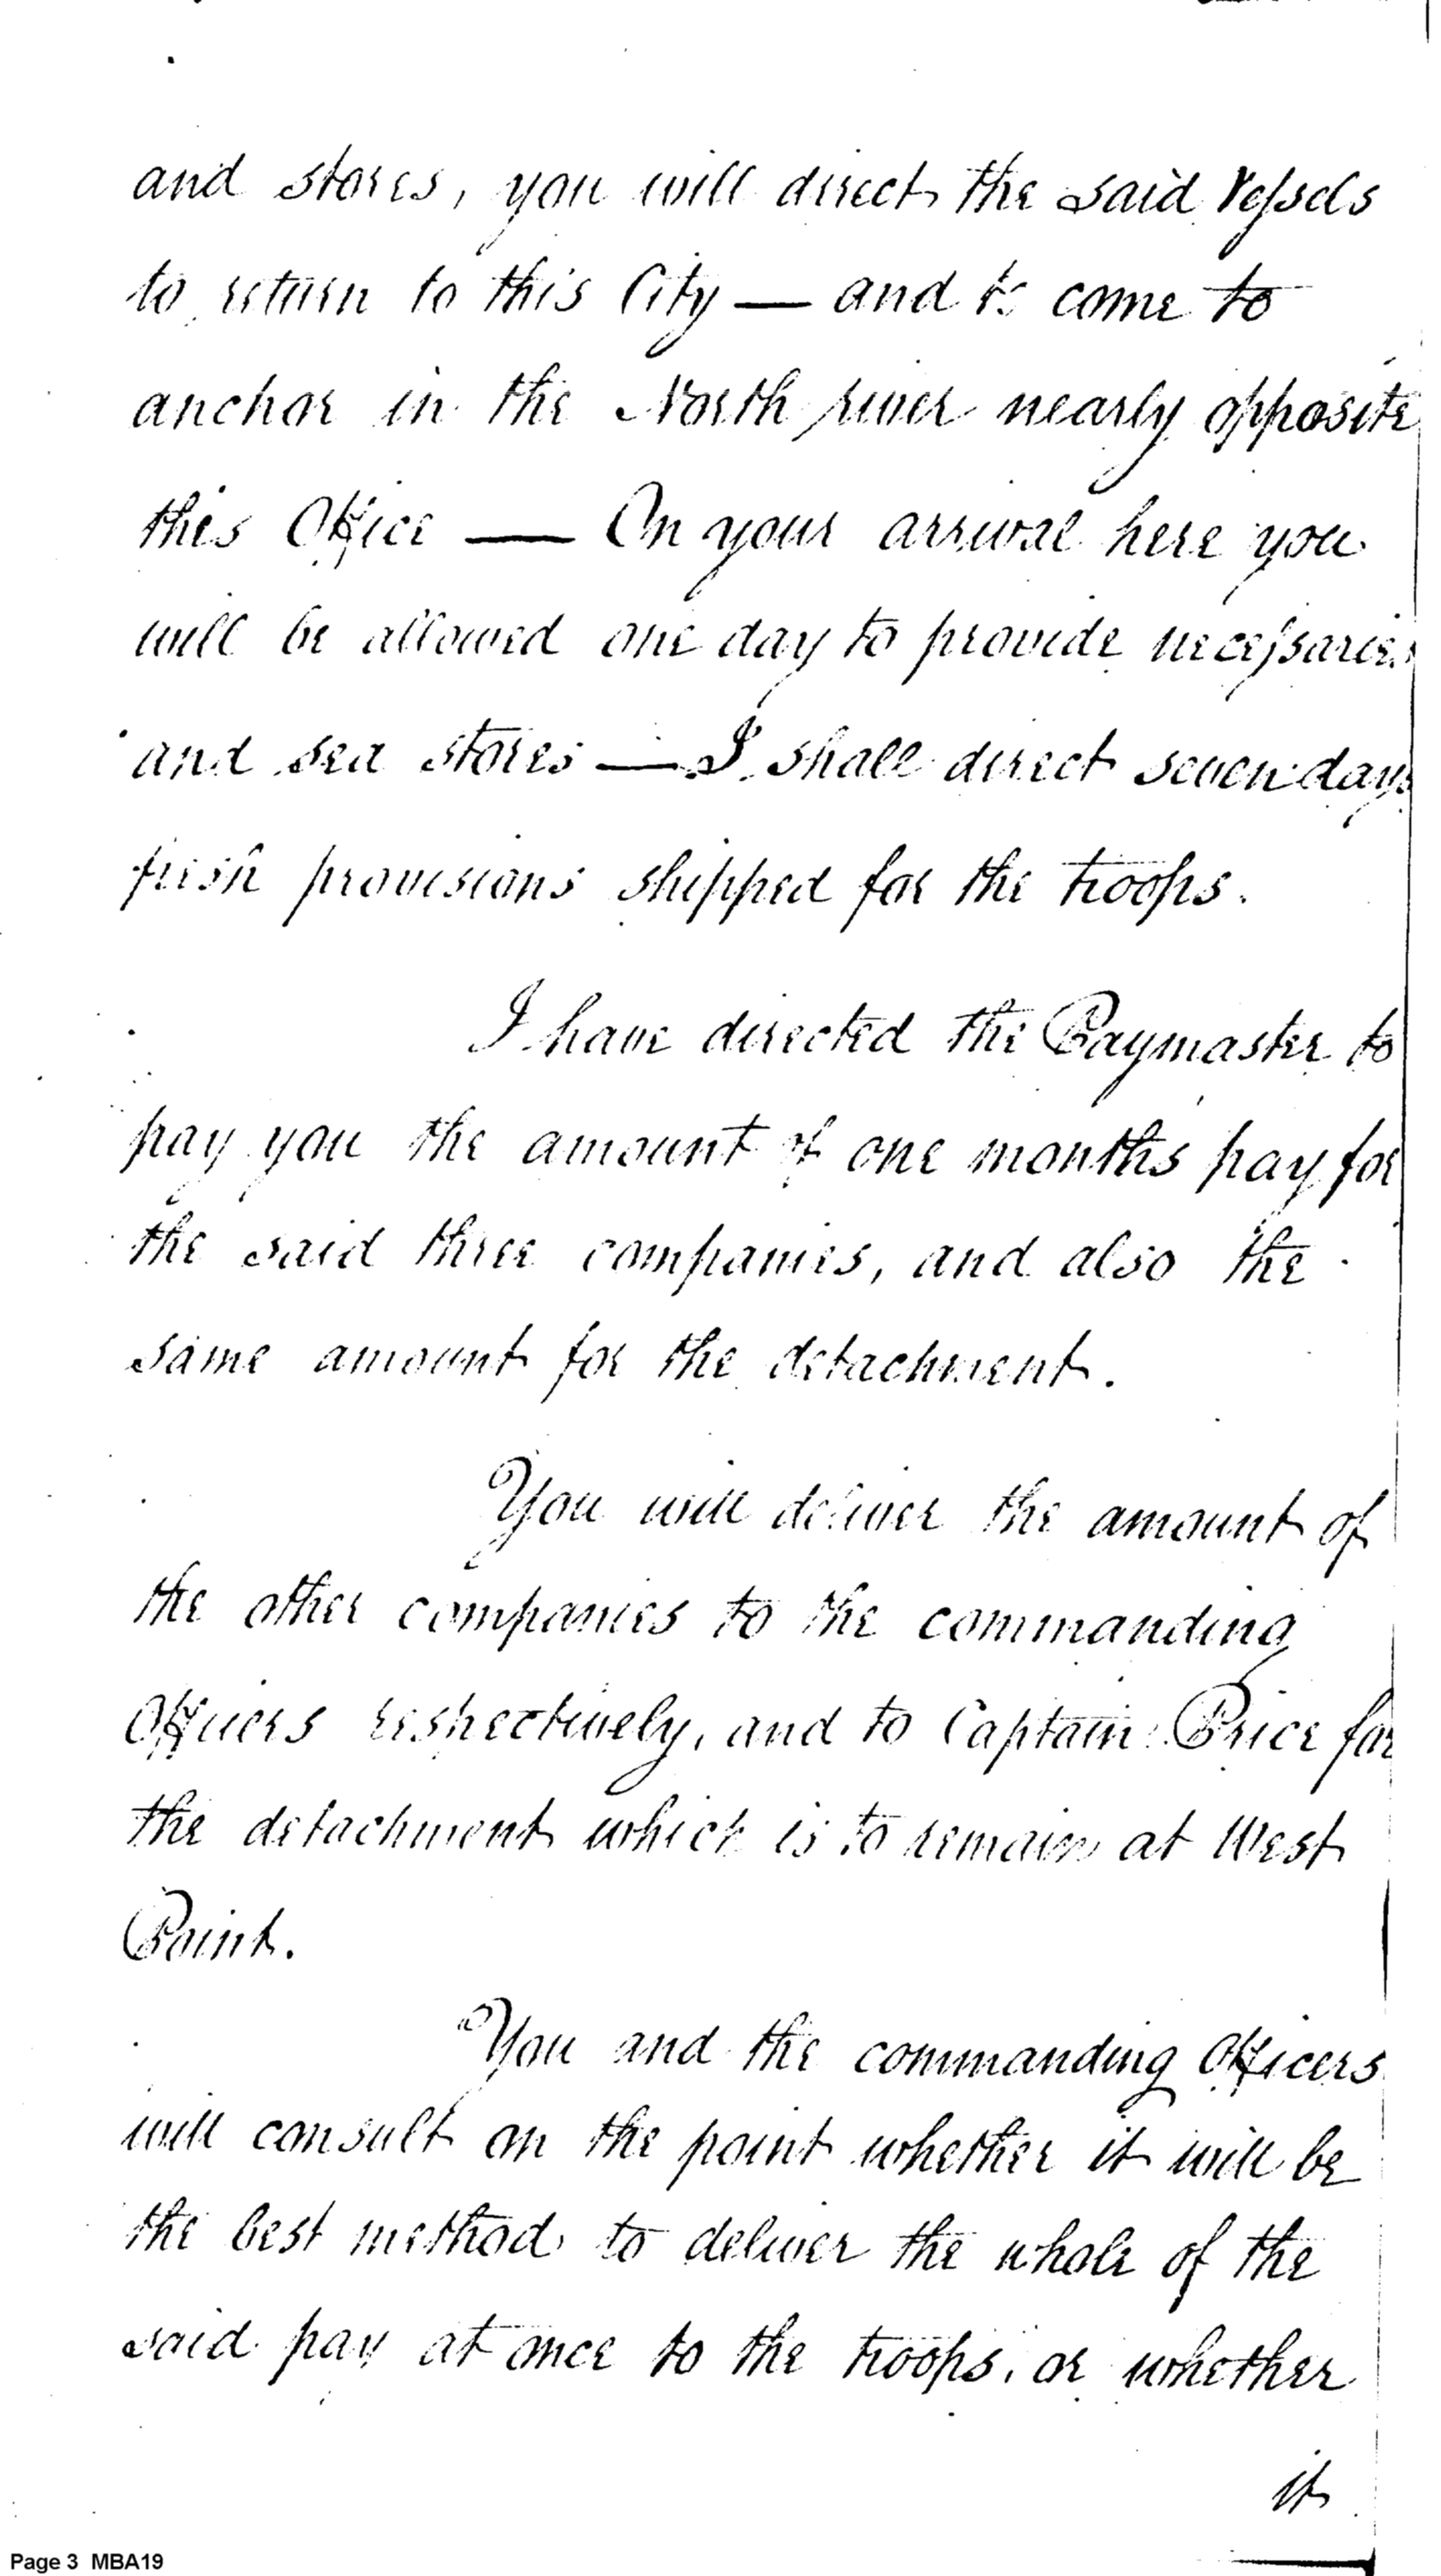 and stores, you will direct the said Vessels
to return to this City — and to come to
anchor in the North river nearly opposite
this Office — On your arrival here you
will be allowed one day to provide necessaries
and sea stores — I shall direct seven days
fresh provisions shipped for the troops.
I have directed the Paymaster to
pay you the amount of one months pay for
the said three companies, and also the
same amount for the detachment.
You will deliver the amount of
the other companies to the commanding
Officers respectively, and to Captain Price for
the detachment which is to remain at West
Point.
You and the commanding Officers
will consult on the point whether it will be
the best method to deliver the whole of the
said pay at once to the troops, or whether
it
Page 3 MBA19